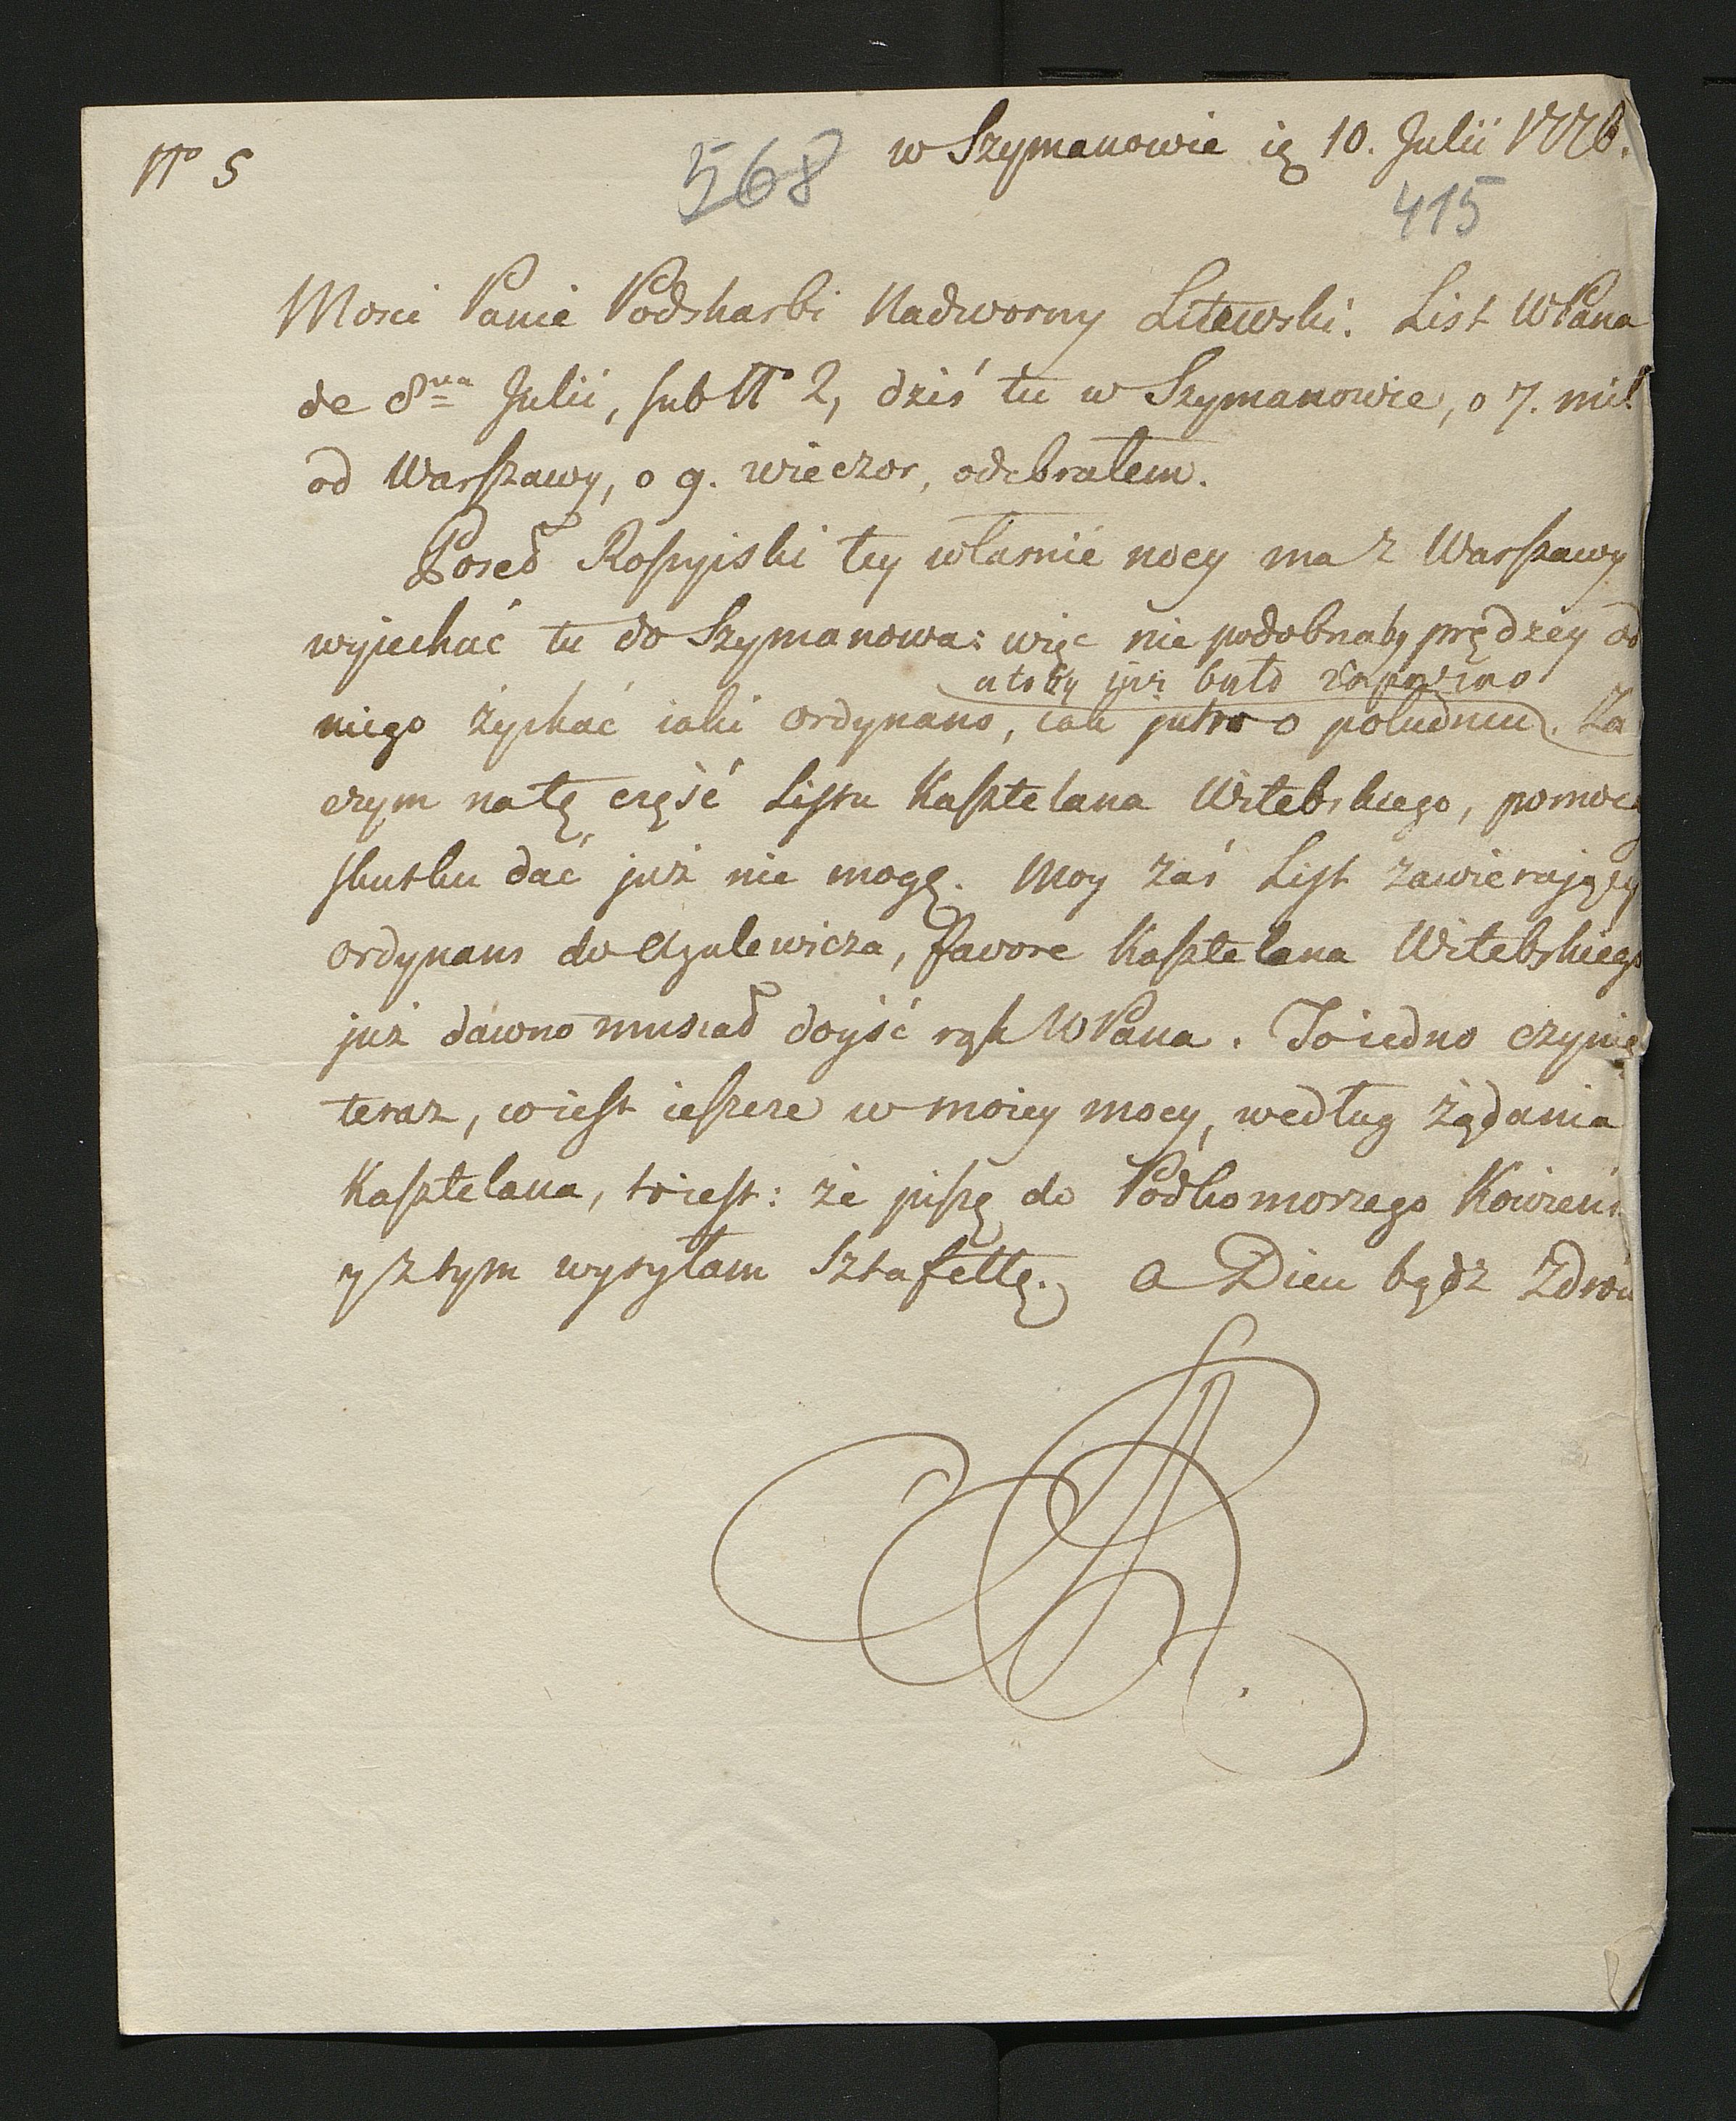 No 5
568
w Szymanowie ię 10. Julii 1776.
415
Mosci Panie Podskarbi Nadworny Litewski. List WPana
de 8va Julii, sub No 2, dziś tu w Szymanowie, o 7. mil
od Warszawy, o 9. wieczor, odebrałem.
Poseł Rossyiski tey własnie nocy ma z Warszawy
wyiechać tu do Szymanowa: więc nie podobnaby prędzey od
a toby już było zapozno
niego zyskać iaki ordynans, iak jutro o południu. Za
czym na tę część Listu Kasztelana Witebskiego, pomoc
skutku dać już nie mogę. Moy zaś List zawierający
ordynans do Azulewicza, favore Kasztelana Witebskiego
już dawno musiał doyść rąk WPana. To iedno czynię
teraz, co iest ieszcze w moiey mocy, według żądania
Kasztelana, to iest: że piszę do Podkomorzego Kowień
y z tym wysyłam Sztafettę. A Dieu bądź Zdrów